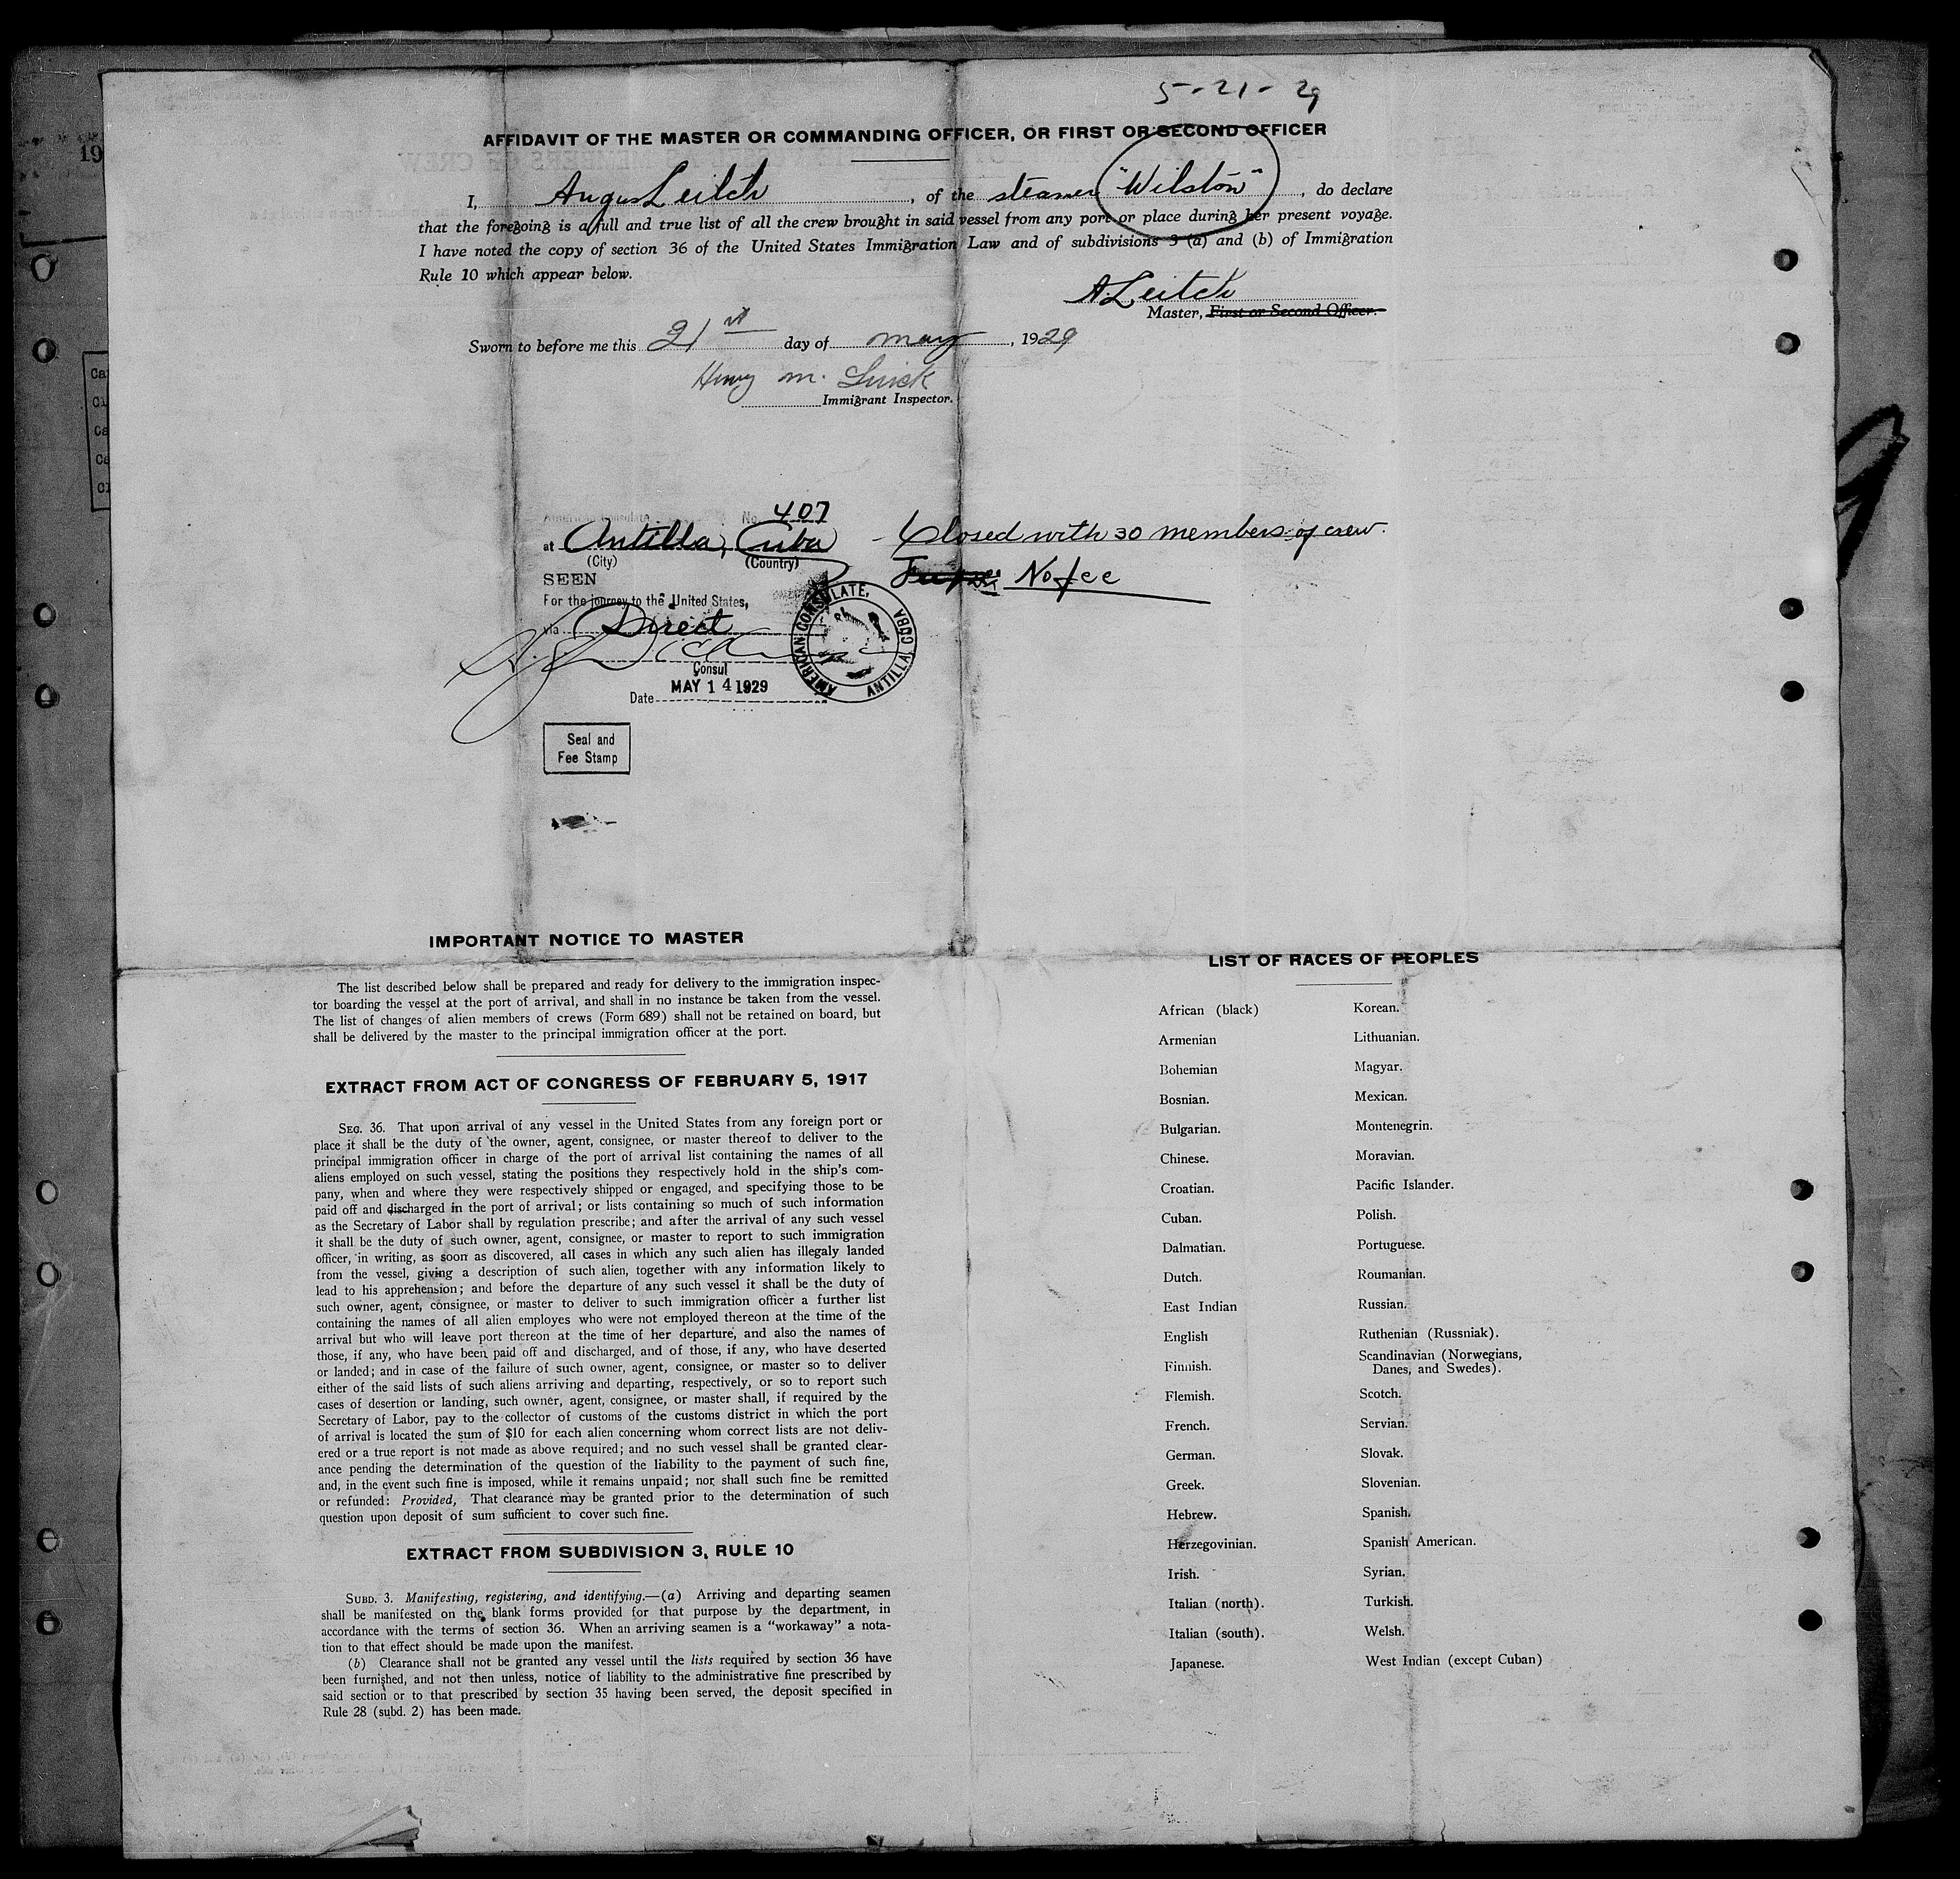 5-21-29
AFFIDAVIT OF THE MASTER OR COMMANDING OFFICER, OR FIRST OR SECOND OFFICER
I, Angus Leitch, of the steamer "Wilston", do declare
that the foregoing is a full and true list of all the crew brought in said vessel from any port or place during her present voyage.
I have noted the copy of section 36 of the United States Immigration Law and of subdivisions 3 (a) and (b) of Immigration
Rule 10 which appear below.
A. Leitch
Master, First or Second Officer.
Sworn to before me this 21st day of may, 1929
Henry M.
Immigrant Inspector.
19
American Consulate No. 407
at Antilla, Cuba
(City) (Country)
SEEN
For the journey to the United States,
via Direct
Consul
MAY 14 1929
Date
AMERICAN CONSULATE, ANTILLA, CUBA
Seal and
Fee Stamp
- Closed with 30 members of crew.
No fee
IMPORTANT NOTICE TO MASTER
The list described below shall be prepared and ready for delivery to the immigration inspec-
tor boarding the vessel at the port of arrival, and shall in no instance be taken from the vessel.
The list of changes of alien members of crews (Form 689) shall not be retained on board, but
shall be delivered by the master to the principal immigration officer at the port.
EXTRACT FROM ACT OF CONGRESS OF FEBRUARY 5, 1917
SEC. 36. That upon arrival of any vessel in the United States from any foreign port or
place it shall be the duty of the owner, agent, consignee, or master thereof to deliver to the
principal immigration officer in charge of the port of arrival list containing the names of all
aliens employed on such vessel, stating the positions they respectively hold in the ship's com-
pany, when and where they were respectively shipped or engaged, and specifying those to be
paid off and discharged in the port of arrival; or lists containing so much of such information
as the Secretary of Labor shall by regulation prescribe; and after the arrival of any such vessel
it shall be the duty of such owner, agent, consignee, or master to report to such immigration
officer, in writing, as soon as discovered, all cases in which any such alien has illegaly landed
from the vessel, giving a description of such alien, together with any information likely to
lead to his apprehension; and before the departure of any such vessel it shall be the duty of
such owner, agent, consignee, or master to deliver to such immigration officer a further list
containing the names of all alien employes who were not employed thereon at the time of the
arrival but who will leave port thereon at the time of her departure, and also the names of
those, if any, who have been paid off and discharged, and of those, if any, who have deserted
or landed; and in case of the failure of such owner, agent, consignee, or master so to deliver
either of the said lists of such aliens arriving and departing, respectively, or so to report such
cases of desertion or landing, such owner, agent, consignee, or master shall, if required by the
Secretary of Labor, pay to the collector of customs of the customs district in which the port
of arrival is located the sum of $10 for each alien concerning whom correct lists are not deliv-
ered or a true report is not made as above required; and no such vessel shall be granted clear-
ance pending the determination of the question of the liability to the payment of such fine,
and, in the event such fine is imposed, while it remains unpaid; nor shall such fine be remitted
or refunded: Provided, That clearance may be granted prior to the determination of such
question upon deposit of sum sufficient to cover such fine.
EXTRACT FROM SUBDIVISION 3, RULE 10
SUBD. 3. Manifesting, registering, and identifying.—(a) Arriving and departing seamen
shall be manifested on the blank forms provided for that purpose by the department, in
accordance with the terms of section 36. When an arriving seamen is a "workaway" a nota-
tion to that effect should be made upon the manifest.
(b) Clearance shall not be granted any vessel until the lists required by section 36 have
been furnished, and not then unless, notice of liability to the administrative fine prescribed by
said section or to that prescribed by section 35 having been served, the deposit specified in
Rule 28 (subd. 2) has been made.
LIST OF RACES OF PEOPLES
African (black)
Armenian
Bohemian
Bosnian.
Bulgarian.
Chinese.
Croatian.
Cuban.
Dalmatian.
Dutch.
East Indian
English
Finnish.
Flemish.
French.
German.
Greek.
Hebrew.
Herzegovinian.
Irish.
Italian (north).
Italian (south).
Japanese.
Korean.
Lithuanian.
Magyar.
Mexican.
Montenegrin.
Moravian.
Pacific Islander.
Polish.
Portuguese.
Roumanian.
Russian.
Ruthenian (Russniak).
Scandinavian (Norwegians,
Danes, and Swedes).
Scotch.
Servian.
Slovak.
Slovenian.
Spanish.
Spanish American.
Syrian.
Turkish.
Welsh.
West Indian (except Cuban)